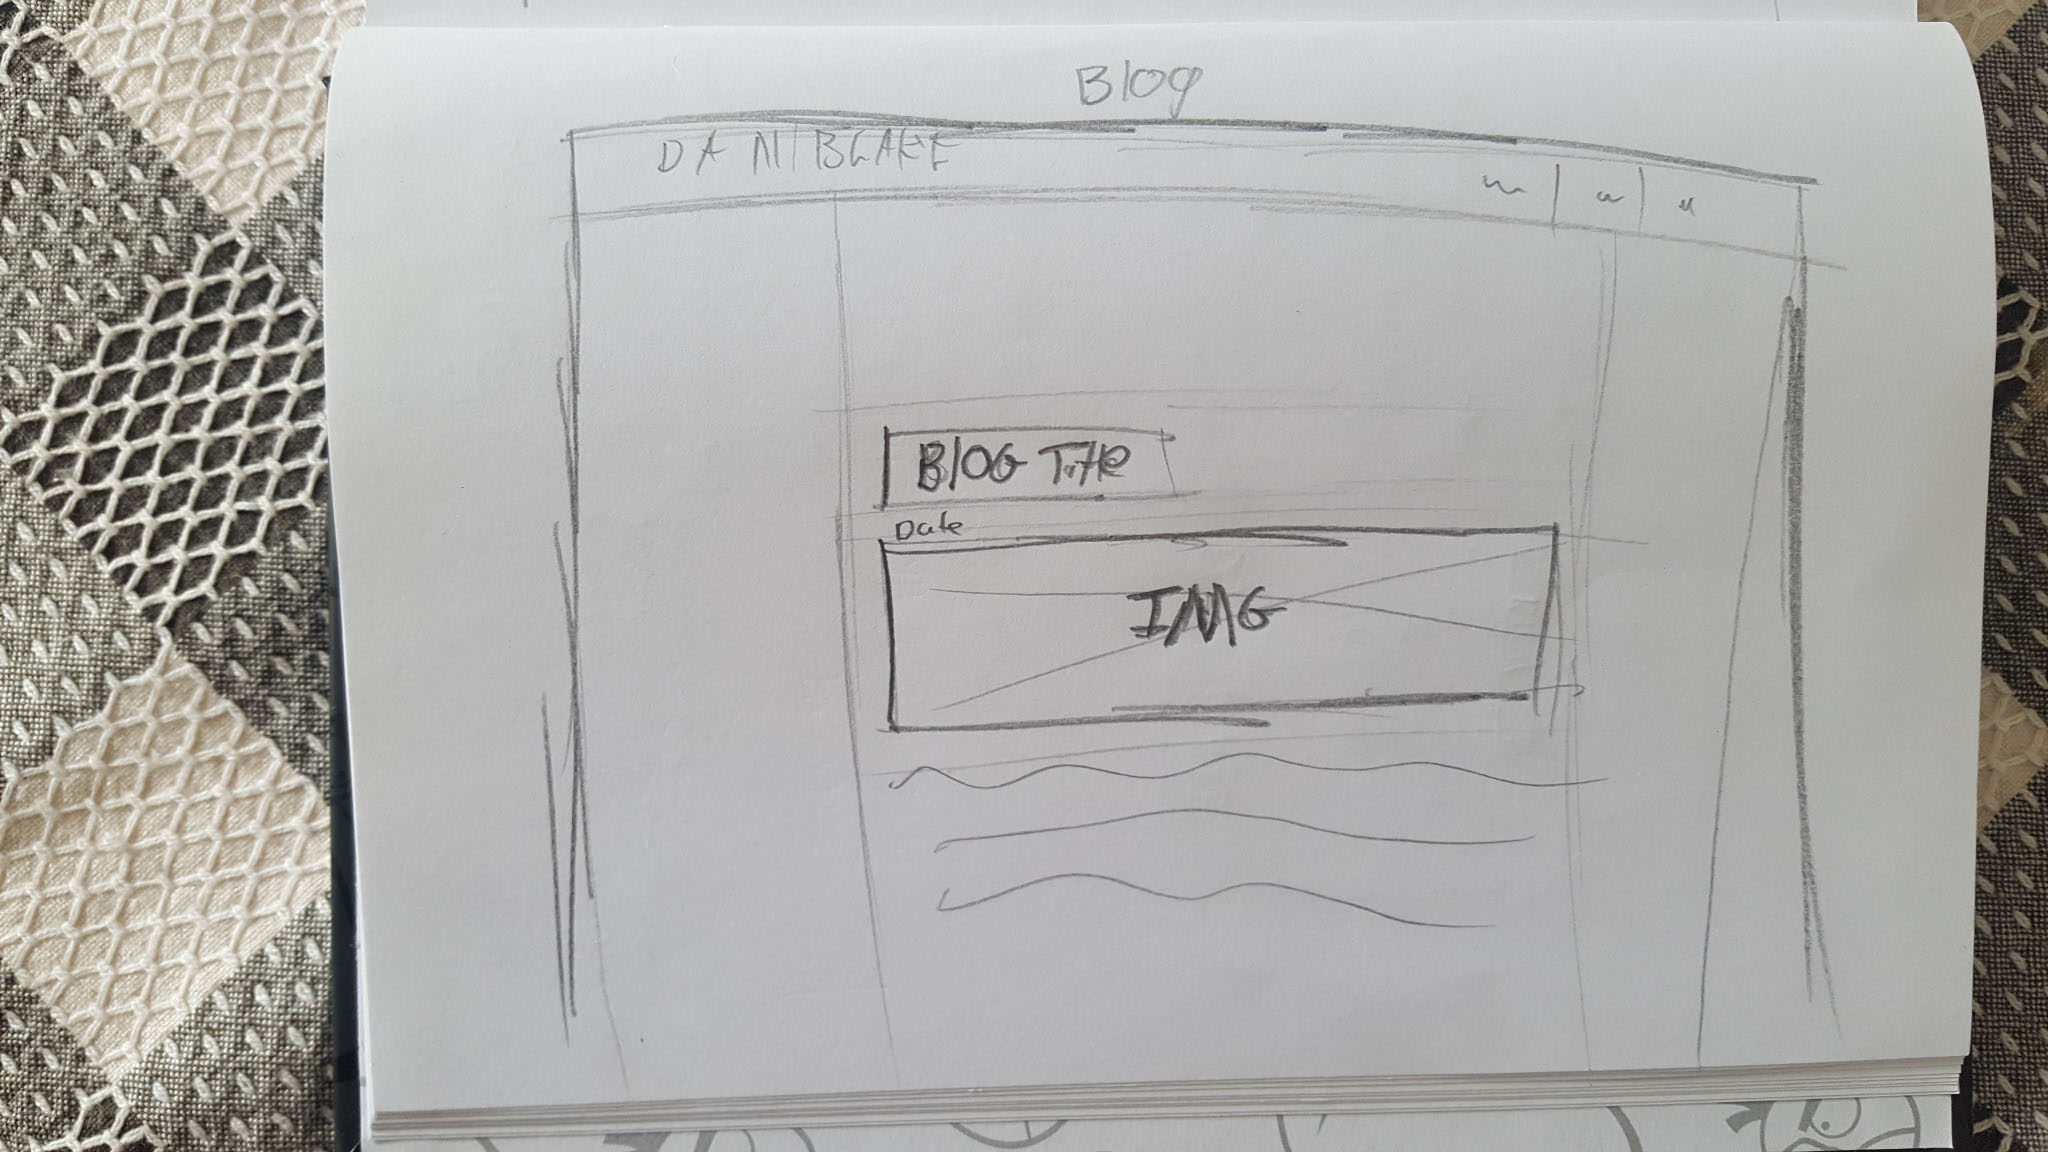 Blog
DAN BLAKE
BLOG Title
Date
IMG